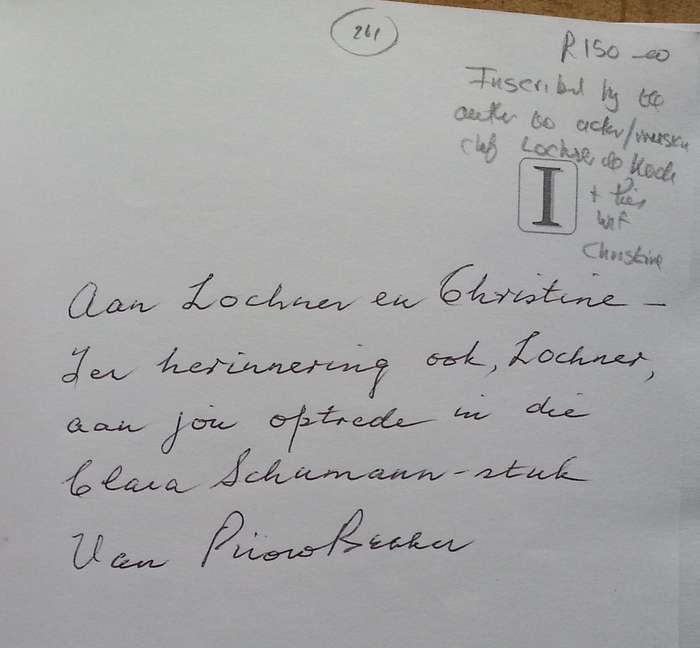 261
R150-00
Inscribed by the
author to actor/
chef Lochner de Kock
I
+
Christine
Aan Lochner en Christine –
Ter herinnering ook, Lochner,
aan jou optrede in die
Clara Schumann-stuk
Van